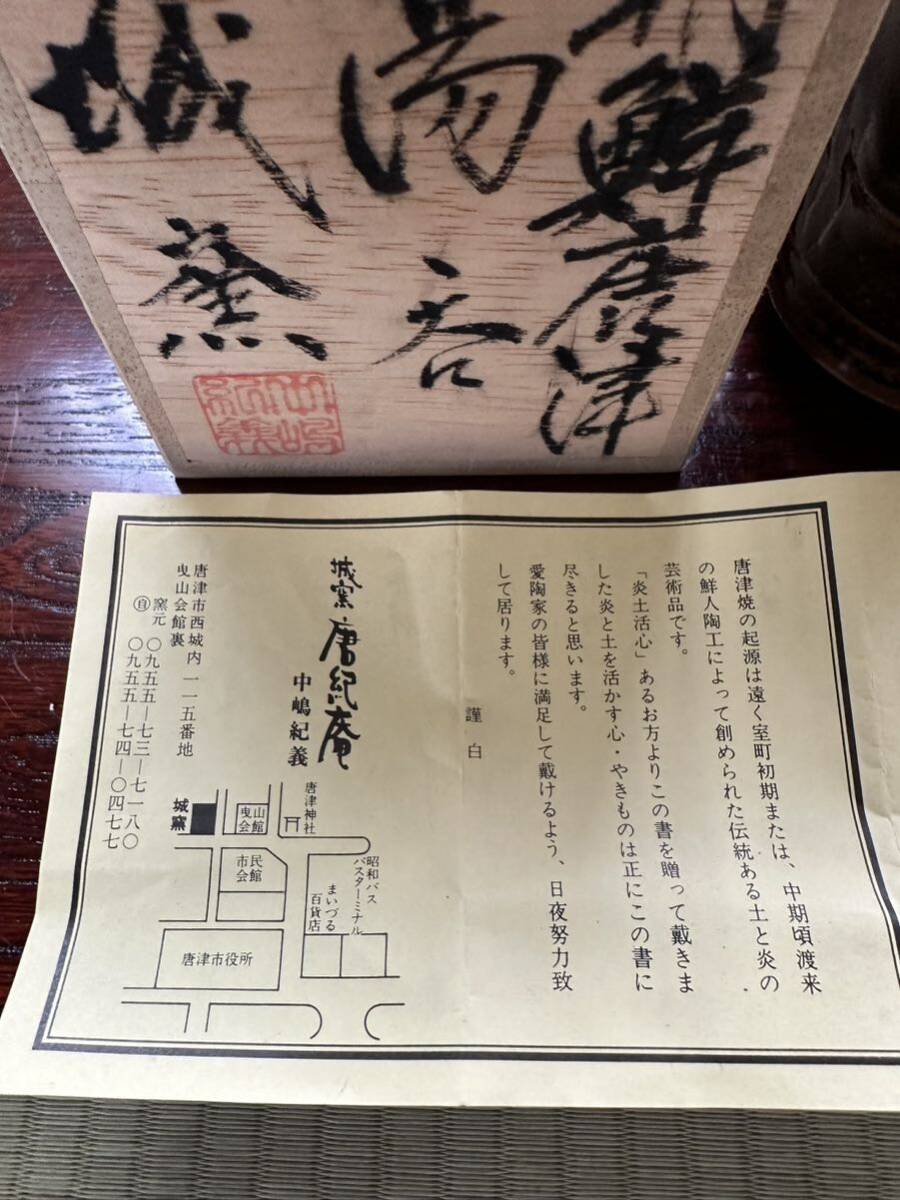 朝鮮唐津
湯呑
城窯
中嶋紀義
唐津焼の起源は遠く室町初期または、中期頃渡来
の鮮人陶工によって創められた伝統ある土と炎の
芸術品です。
「炎土活心」あるお方よりこの書を贈って戴きま
した炎と土を活かす心・やきものは正にこの書に
尽きると思います。
愛陶家の皆様に満足して戴けるよう、日夜努力致
して居ります。
謹白
城窯 唐紀庵
中嶋紀義
唐津市西城内一一五番地
曳山会館裏
窯元 〇九五五―七三―七一八〇
自 〇九五五―七四―〇四七七
唐津神社
曳山会館
城窯
昭和バスバスターミナル
まいづる百貨店
市民会館
唐津市役所